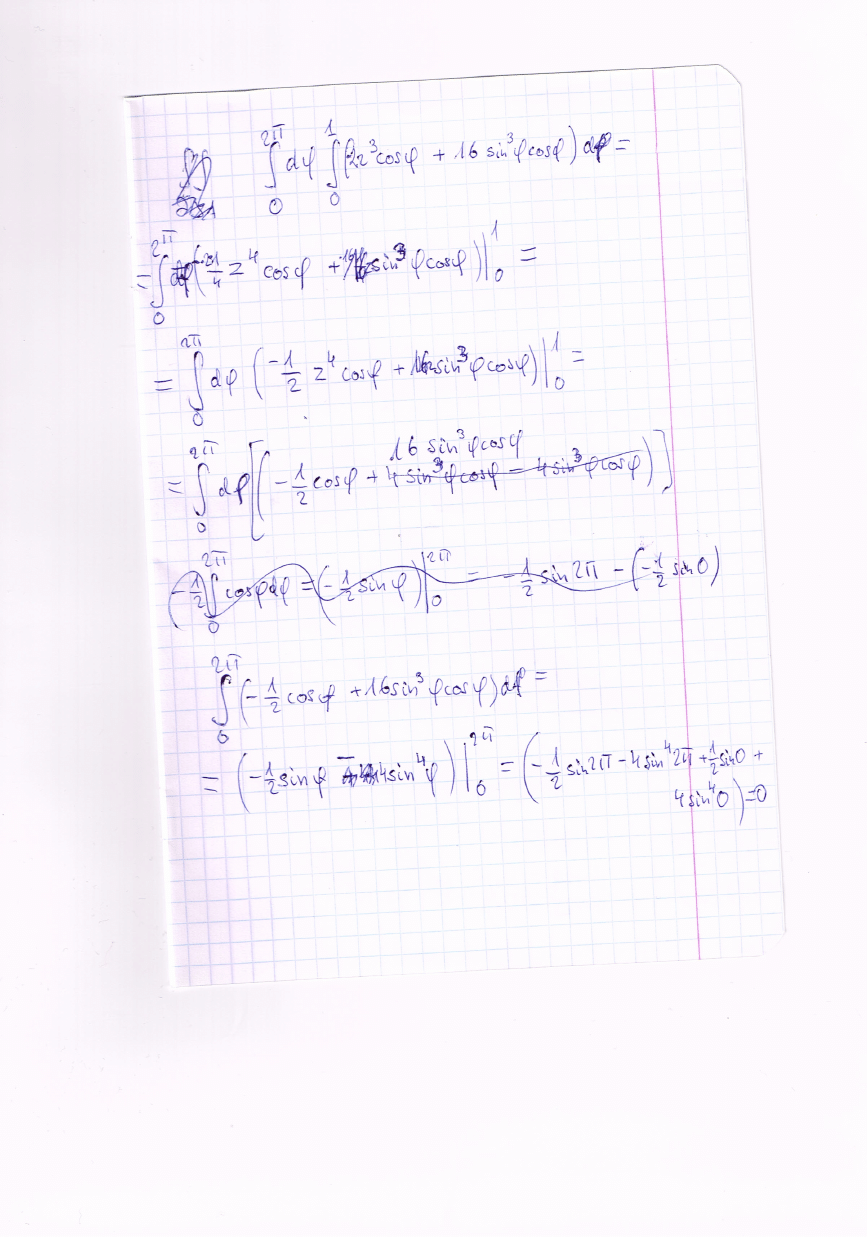 ∫₀^{2π} dφ ∫₀^1 (-2z³cosφ + 16 sin³φcosφ) dφ =
= ∫₀^{2π} ( 1/4 z⁴ cosφ + sin³φcosφ) |₀^1 =
= ∫₀^{2π} dφ (-1/2 z⁴ cosφ + 16z sin³φcosφ) |₀^1 =
16 sin³φcosφ
= ∫₀^{2π} dφ [(-1/2 cosφ + 4 sin³φcosφ - 4 sin³φcosφ)]
(-1/2 ∫₀^{2π} cosφdφ = (-1/2 sinφ) |₀^{2π} = -1/2 sin2π - (-1/2 sin0)
∫₀^{2π} (-1/2 cosφ + 16sin³φcosφ)dφ =
= (-1/2 sinφ - 4sin⁴φ) |₀^{2π} = (-1/2 sin2π - 4sin⁴2π + 1/2 sin0 +
4sin⁴0) = 0